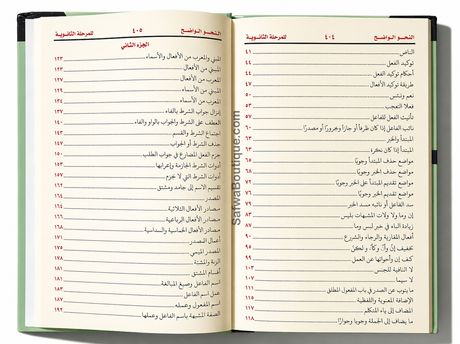 النحو الواضح ٤٠٤ للمرحلة الثانوية
الناقص ٤١
توكيد الفعل ٤٤
أحكام توكيد الفعل ٤٤
طريقة توكيد الأفعال ٤٧
نعم وبئس ٥٠
فعلا التعجب ٥٣
تأنيث الفعل للفاعل ٥٧
نائب الفاعل إذا كان ظرفاً أو جارًا ومجرورًا أو مصدرًا ٦٠
المبتدأ والخبر ٦٣
المبتدأ إذا كان نكرة ٦٣
مواضع حذف المبتدأ وجوبًا ٦٥
مواضع حذف الخبر وجوبًا ٦٨
مواضع تقديم المبتدأ على الخبر وجوبًا ٧٢
مواضع تقديم الخبر وجوبًا ٧٦
سد الفاعل أو نائبه مسد الخبر ٧٩
إن وما ولا ولات المشبهات بليس ٨٣
زيادة الباء في خبر ليس وما ٨٧
أفعال المقاربة والرجاء والشروع ٩٠
تخفيف إنّ وأنّ وكأنّ ولكنّ ٩٥
كف إن وأخواتها عن العمل ٩٩
لا النافية للجنس ١٠٣
لا سيما ١٠٧
ما ينوب عن المصدر في باب المفعول المطلق ١١١
الإضافة المعنوية واللفظية ١١٥
المضاف إلى ياء المتكلم ١١٧
ما يضاف إلى الجملة وجوبا وجوازًا ١١٨
النحو الواضح ٤٠٥ للمرحلة الثانوية
الجزء الثاني
المبني والمعرب من الأفعال والأسماء ١٢٣
المبني من الأفعال ١٢٣
المعرب من الأفعال ١٢٧
المبني من الأسماء ١٢٩
المعرب من الأسماء ١٣٤
اقتران جواب الشرط بالفاء ١٣٧
العطف على الشرط والجواب بالواو والفاء ١٤٠
اجتماع الشرط والقسم ١٤٣
حذف الشرط أو الجواب ١٤٧
جزم الفعل المضارع في جواب الطلب ١٥٠
أدوات الشرط الجازمة وإعرابها ١٥٣
أدوات الشرط التي لا تجزم ١٥٧
تقسيم الاسم إلى جامد ومشتق ١٦٢
المصدر ١٦٤
مصادر الأفعال الثلاثية ١٦٤
مصادر الأفعال الرباعية ١٦٦
مصادر الأفعال الخماسية والسداسية ١٦٨
أعمال المصدر ١٧١
المصدر الميمي ١٧٥
المرة والهيئة ١٧٨
أقسام المشتق ١٨١
اسم الفاعل وصيغ المبالغة ١٨١
عمل اسم الفاعل ١٨٣
اسم المفعول وعمله ١٨٧
الصفة المشبهة باسم الفاعل وعملها ١٩٢
SafwaBoutique.com